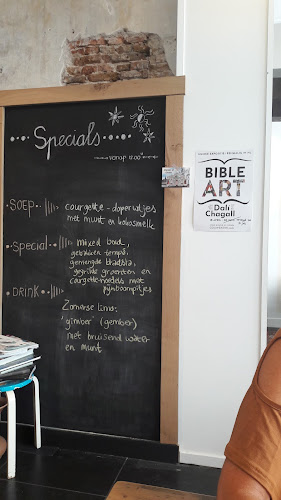 Specials
vanaf 12.00
SOEP
courgette - doperwtjes
met munt en kokosmelk
Special
mixed bowl,
gebakken tempé,
gemengde bladsla,
gegrilde groenten en
courgette-noedels met
pijnboompitjes
DRINK
Zomerse limo:
'gimber' (gember)
met bruisend water
en munt
BIBLE
ART
Dalí
Chagall